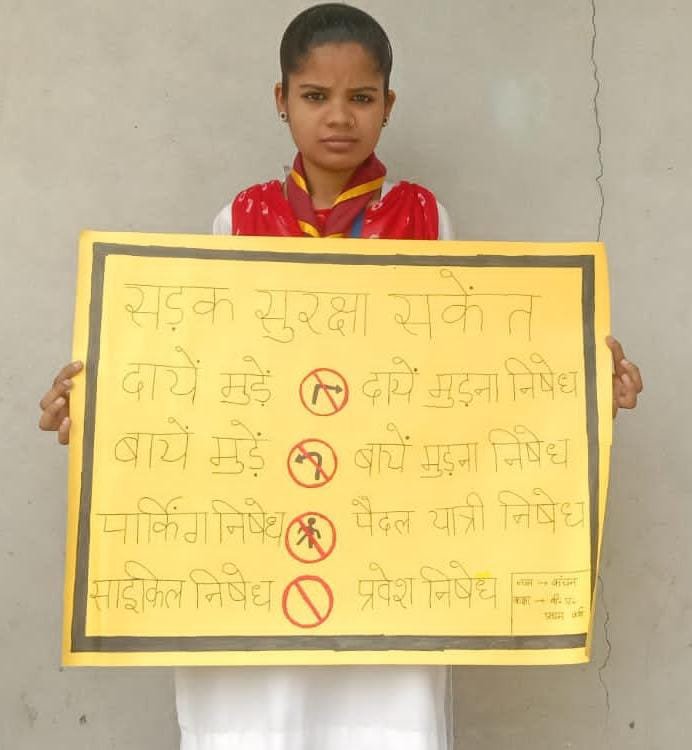 सड़क सुरक्षा सकेंत
दायें मुड़ें दायें मुड़ना निषेध
बायें मुड़ें बायें मुड़ना निषेध
पार्किंग निषेध पैदल यात्री निषेध
साइकिल निषेध प्रवेश निषेध
नाम → कांचन
कक्षा → बी॰ ए॰
प्रथम वर्ष